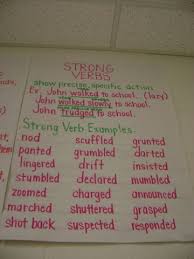 STRONG
VERBS
show precise, specific action
Ex. John walked to school. (lazy)
John walked slowly to school.
John trudged to school.
Strong Verb Examples
nod scuffled grunted
panted grumbled darted
lingered drift insisted
stumbled declared mumbled
zoomed charged announced
marched shuttered grasped
shot back suspected responded